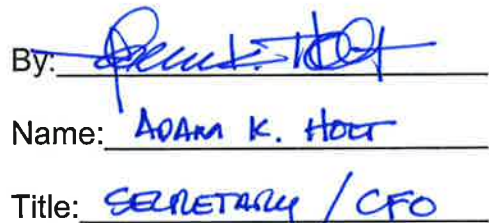 By:
Name: ADAM K. HOLT
Title: SECRETARY / CFO